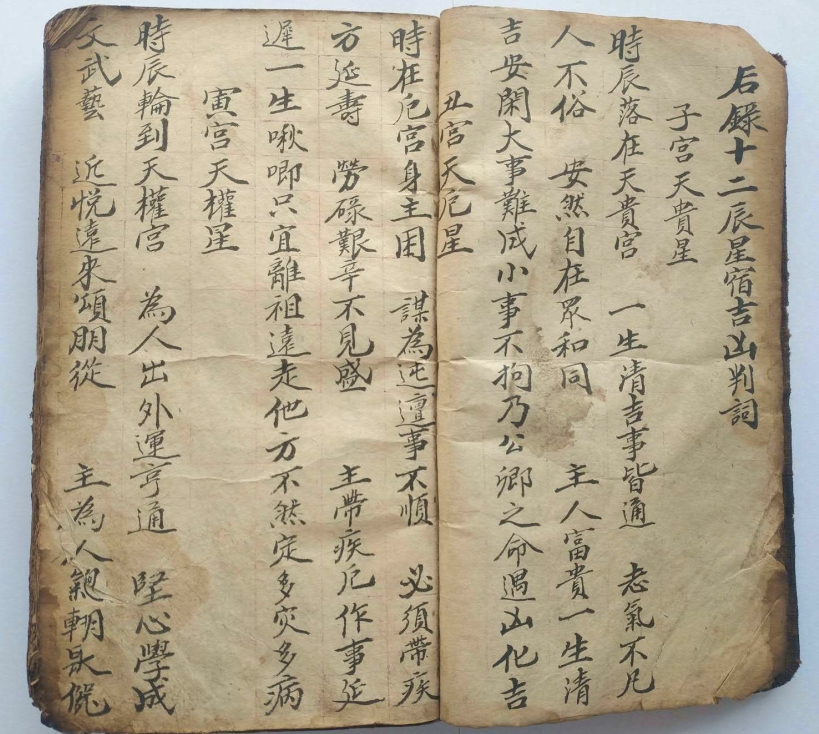 后錄十二辰星宿吉凶判詞
子宮天貴星
時辰落在天貴宮 一生清吉事皆通 志氣不凡
人不俗 安然自在眾和同 主人富貴一生清
吉安閑大事難成小事不拘乃公卿之命遇凶化吉
丑宮天厄星
時在厄宮身主困 謀為迍邅事不順 必須帶疾
方延壽 勞碌艱辛不見盛 主帶疾厄作事延
遲一生啾唧只宜離祖遠走他方不然定多灾多病
寅宮天權星
時辰輪到天權宮 為人出外運亨通 堅心學成
文武藝 近悅遠來頌朋從 主為人